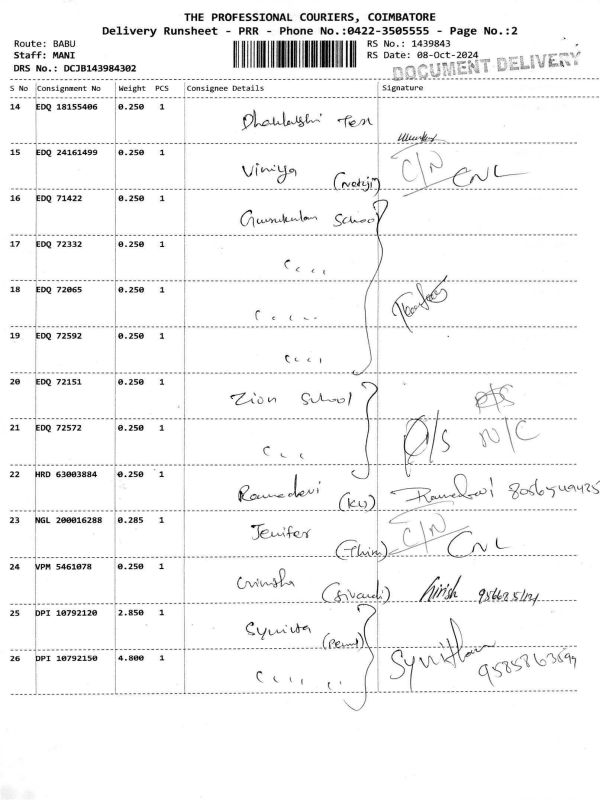 THE PROFESSIONAL COURIERS, COIMBATORE
Delivery Runsheet - PRR - Phone No.:0422-3505555 - Page No.:2
Route: BABU
Staff: MANI
DRS No.: DCJB143984302
RS No.: 1439843
RS Date: 08-Oct-2024
DOCUMENT DELIVERY
S No Consignment No Weight PCS Consignee Details Signature
14 EDQ 18155406 0.250 1
15 EDQ 24161499 0.250 1 Viniya C/N CNL
16 EDQ 71422 0.250 1 Gurukulam School
17 EDQ 72332 0.250 1 " " " "
18 EDQ 72065 0.250 1 " " " " "
19 EDQ 72592 0.250 1 " " " "
20 EDQ 72151 0.250 1 Zion School
21 EDQ 72572 0.250 1 " " " O/S N/C
22 HRD 63003884 0.250 1 Ramadevi (KU) Ramadevi
23 NGL 200016288 0.285 1 Jenifer C/N CNL
24 VPM 5461078 0.250 1 Girish
25 DPI 10792120 2.850 1
26 DPI 10792150 4.800 1 " " " " "